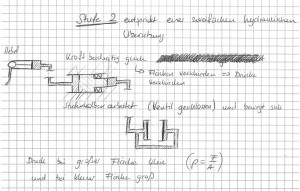 Stufe 2 entspricht einer zweifachen hydraulischen
Übersetzung
Hebel
Kraft beidseitig gleich
↳ Flächen verschieden => Drücke
verschieden
(Ventil geschlossen) und bewegt sich
Druck bei großer Fläche klein (p = F/A)
und bei kleiner Fläche groß